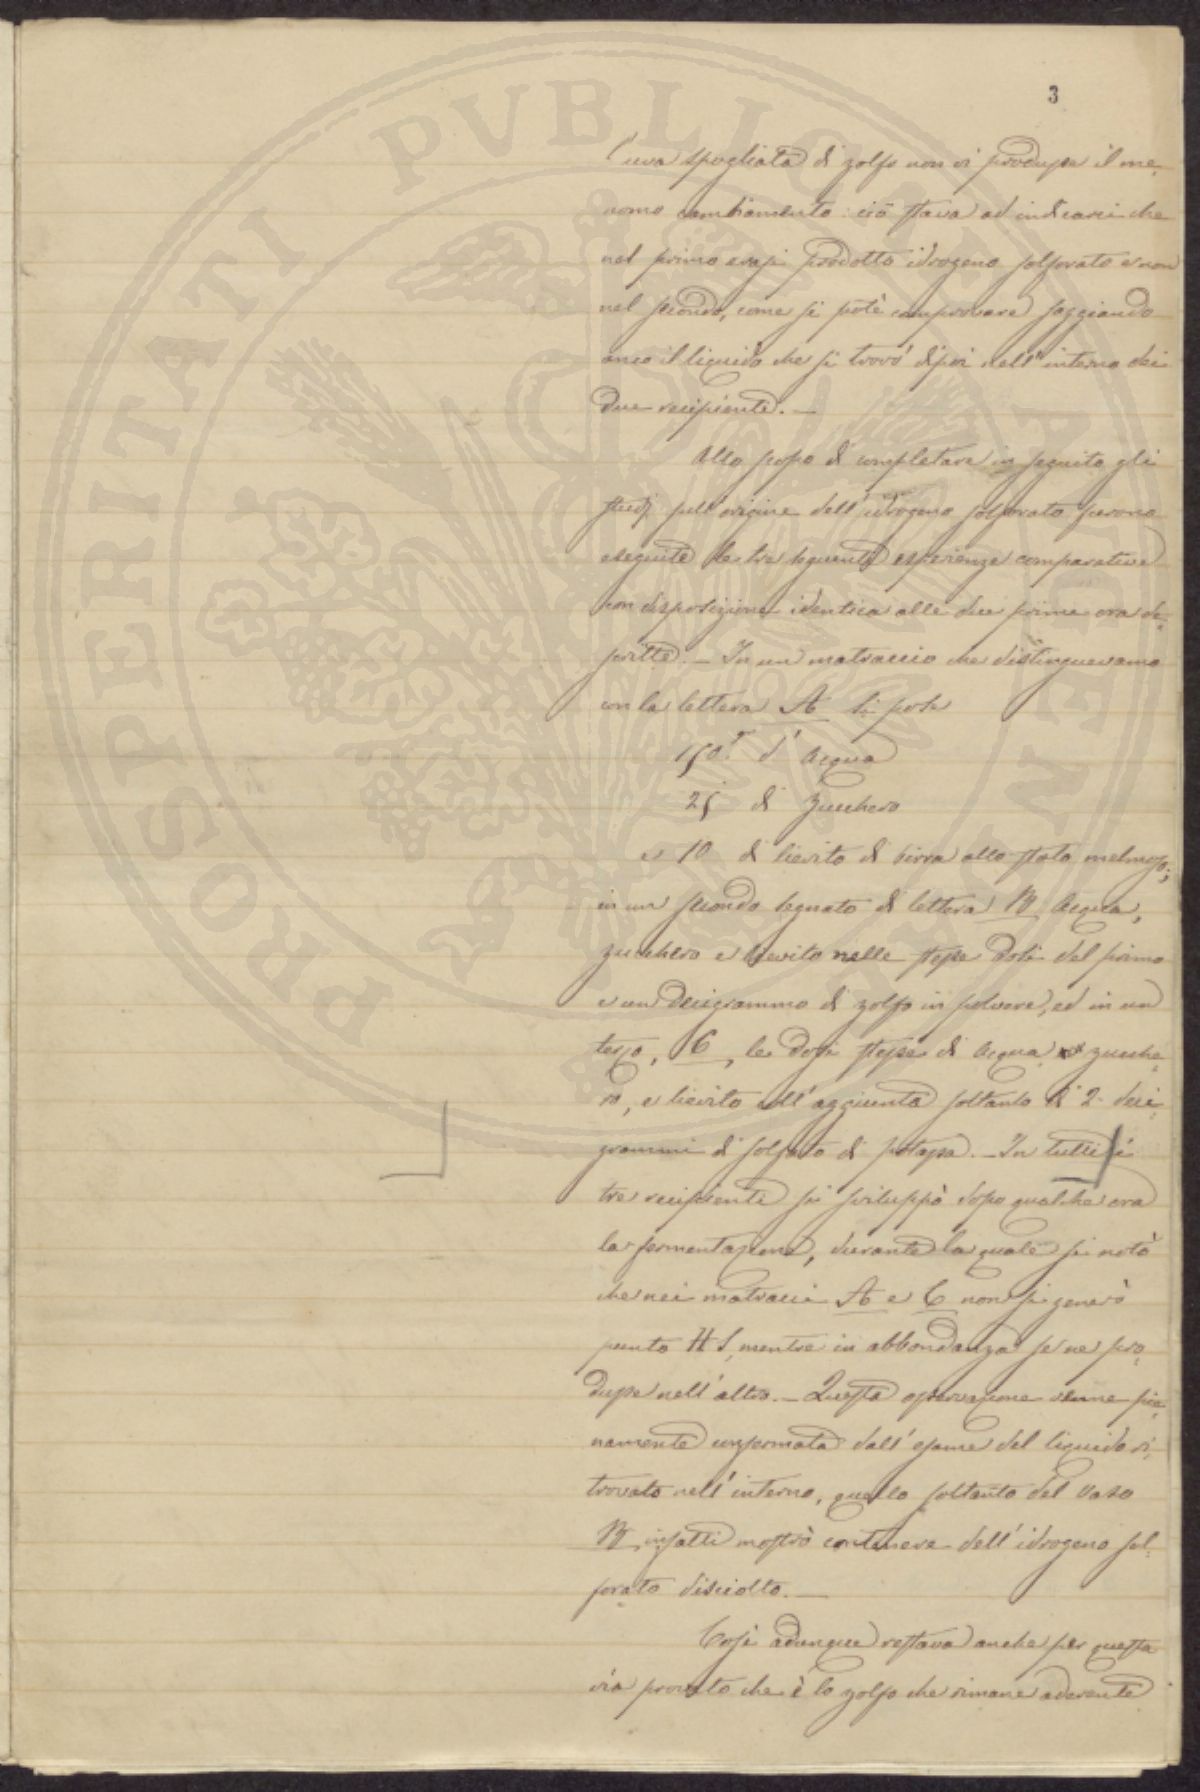 3
l'uva spogliata di zolfo non vi produsse il me-
nomo cambiamento: ciò stava ad indicarci che
nel primo erasi prodotto idrogeno solforato e non
nel secondo, come si potè comprovare saggiando
anco il liquido che si trovò dipoi nell'interno dei
due recipienti. —
Allo scopo di completare in seguito gli
studj sull'origine dell'idrogeno solforato furono
eseguite le tre seguenti esperienze comparative
con disposizione identica alle due prime ora de-
scritte. — In un matraccio che distingueremo
con la lettera A si pose
150.gr d'acqua
25 di zucchero
e 10 di lievito di birra allo stato melmoso;
in un secondo segnato di lettera B acqua,
zucchero e lievito nelle stesse dosi del primo
e un decigrammo di zolfo in polvere, ed in un
terzo, C, le dosi stesse di acqua e zucche-
ro, e lievito coll'aggiunta soltanto di 2. deci-
grammi di solfato di potassa. — In tutti i
tre recipienti si sviluppò dopo qualche ora
la fermentazione, durante la quale si notò
che nei matracci A e C non si generò
punto HS, mentre in abbondanza se ne pro-
dusse nell'altro. — Questa osservazione venne pie-
namente confermata dall'esame del liquido ri-
trovato nell'interno, quello soltanto del vaso
B infatti mostrò contenere dell'idrogeno sol-
forato disciolto. —
Così adunque restava anche per questa
via provato che è lo zolfo che rimane aderente
PROSPERITATI PVBLICAE AVGENDAE